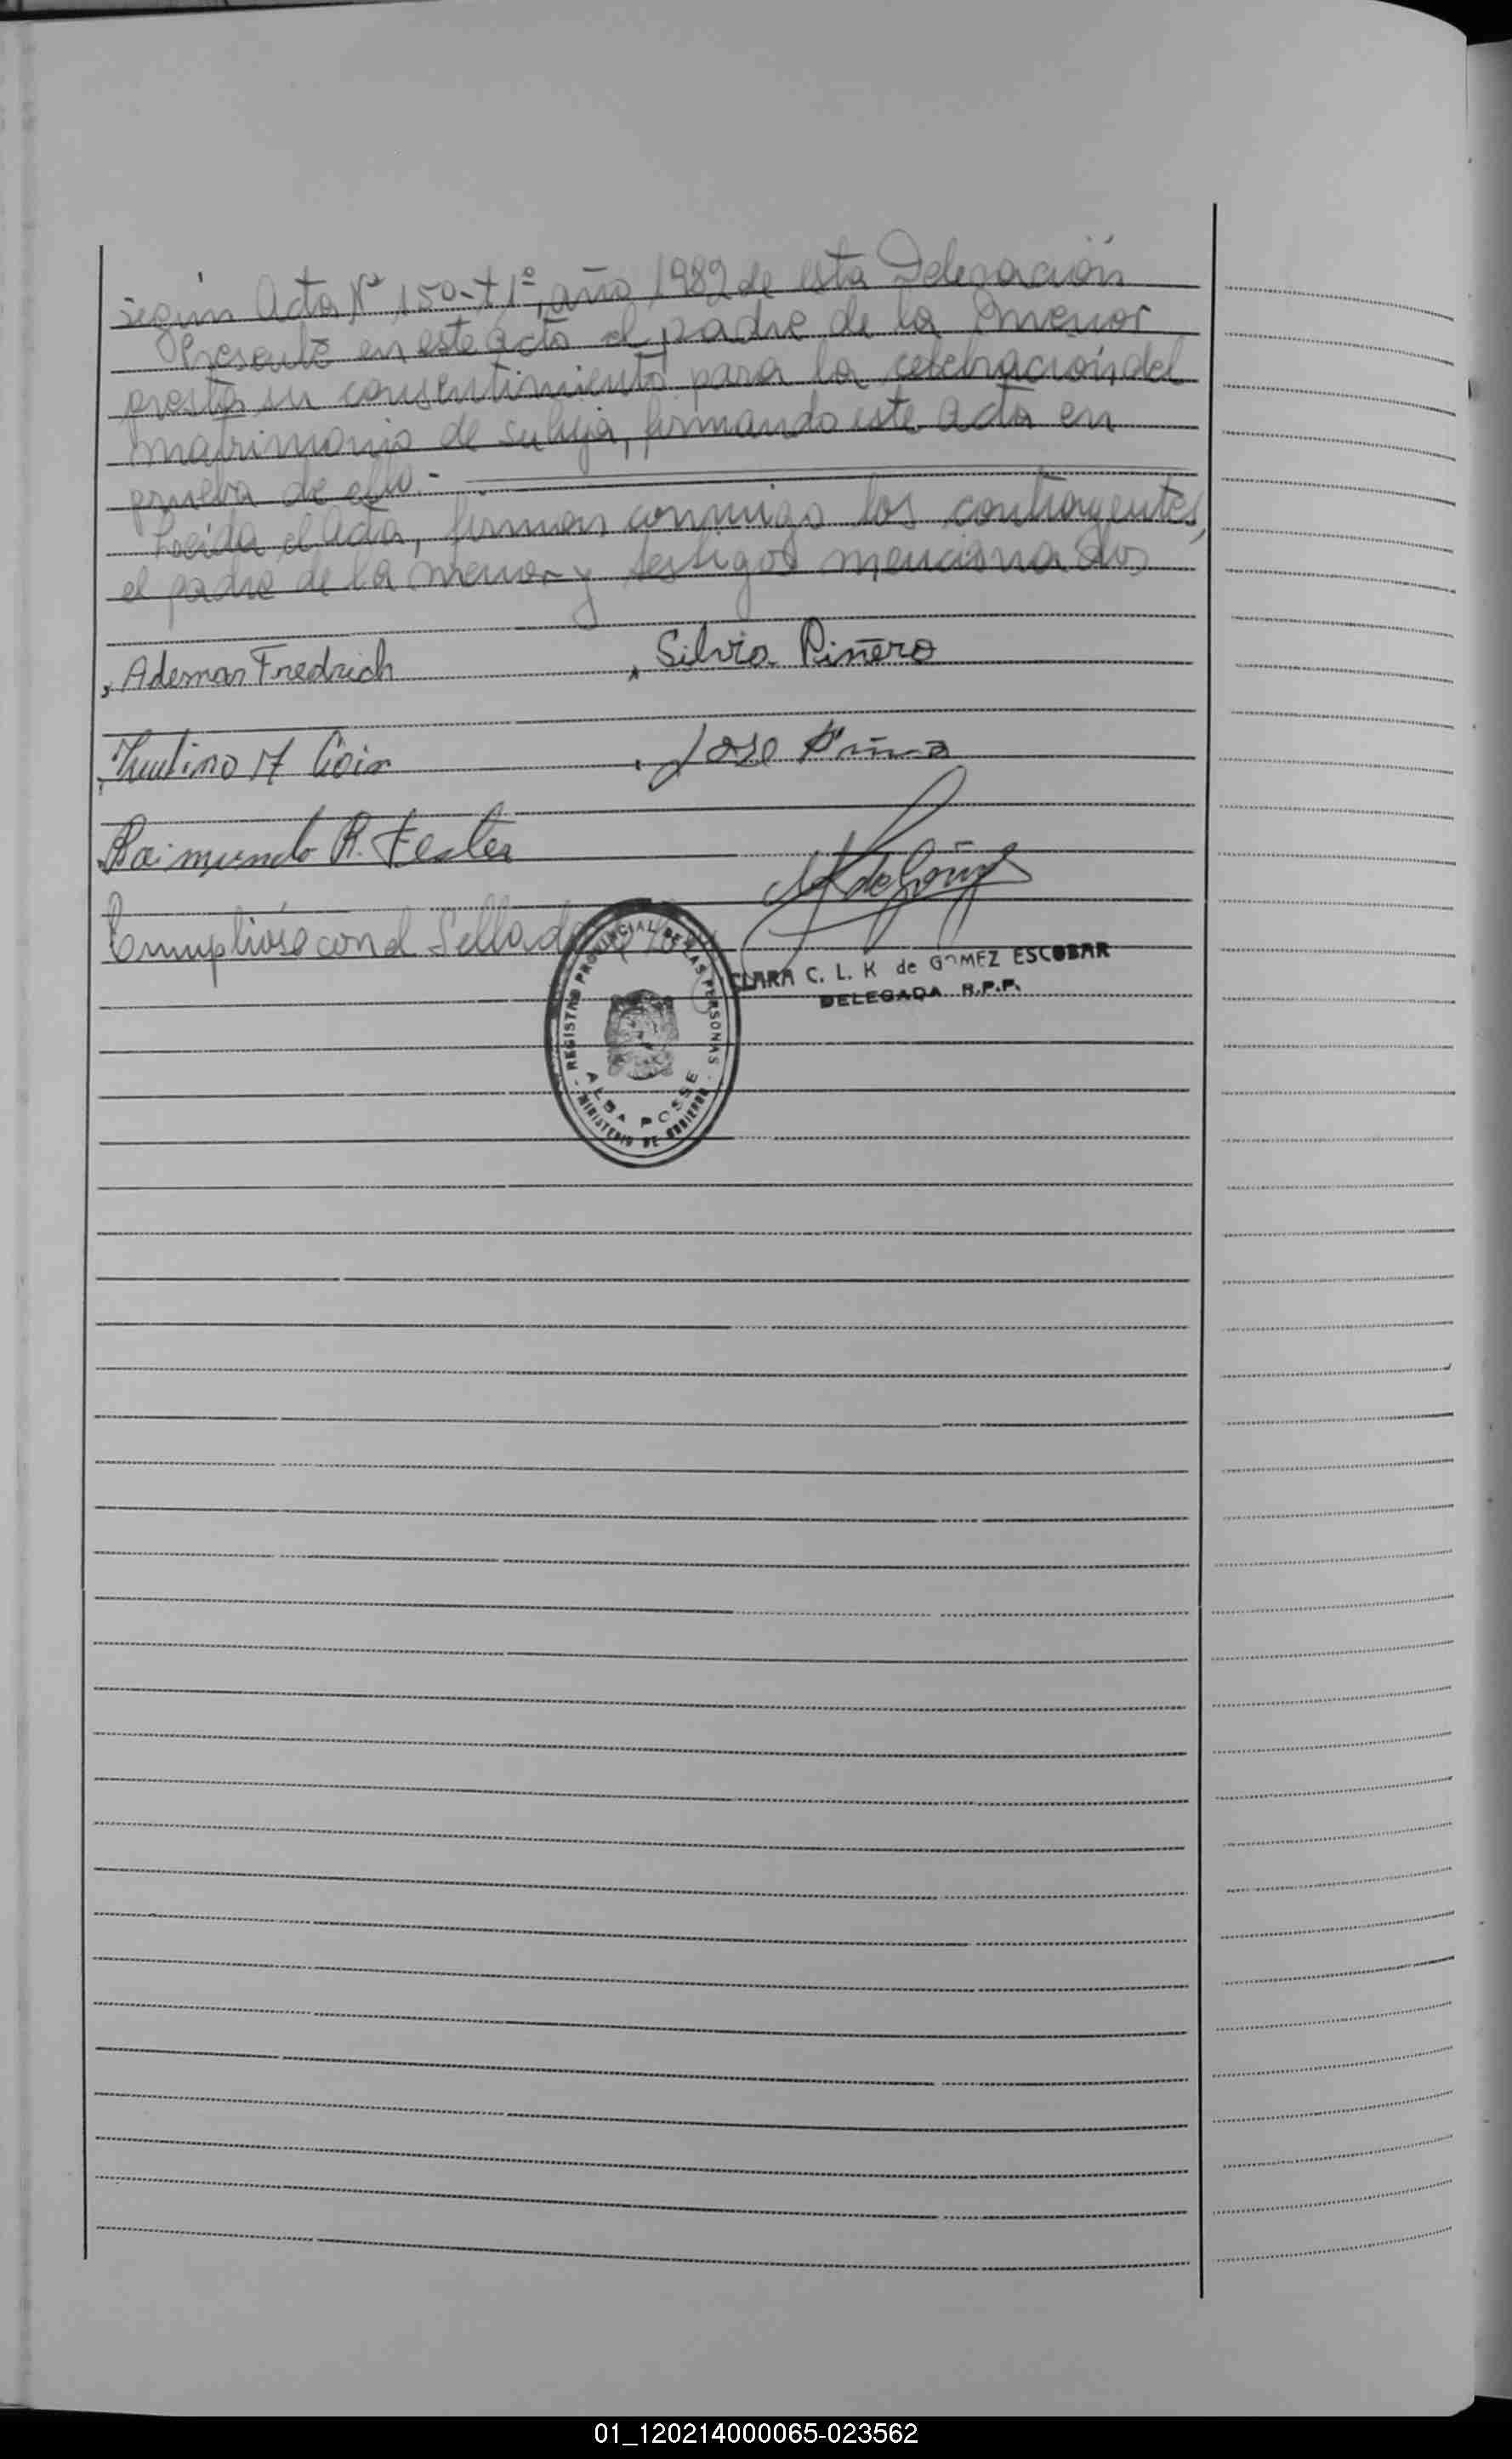 según Acta Nº 150-t 1º, año 1982 de esta Delegación
Presente en este acto el padre de la menor
presta su consentimiento para la celebración del
matrimonio de su hija, firmando este acta en
prueba de ello.-
Leida el Acta, firman conmigo los contrayentes,
el padre de la menor y testigos mencionados
Ademar Fredrich
Silvia Piñero
Jose
Raimundo R. Fester
Cumpliose con el Sellado
CLARA C. L. K de GOMEZ ESCOBAR
DELEGADA R.P.P.
REGISTRO PROVINCIAL DE LAS PERSONAS
ALBA POSSE
- MINISTERIO DE GOBIERNO -
01_120214000065-023562